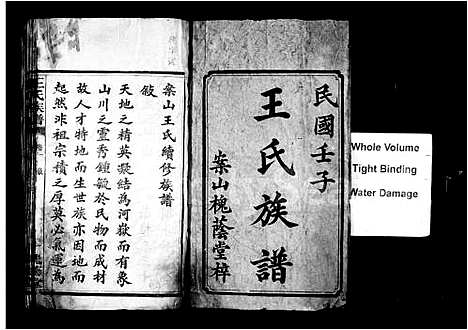 民國壬子
王氏族譜
案山槐蔭堂梓
案山王氏續修族譜
敘
天地之精英凝結為河嶽而有象
山川之靈秀鍾毓於民物而成材
故人才特地而生世族亦因地而
起然非祖宗積之厚莫必氣運為
Whole Volume
Tight Binding
Water Damage